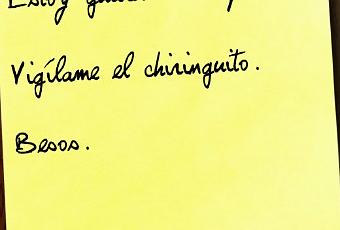 Estoy
Vigílame el chiringuito.
Besos.